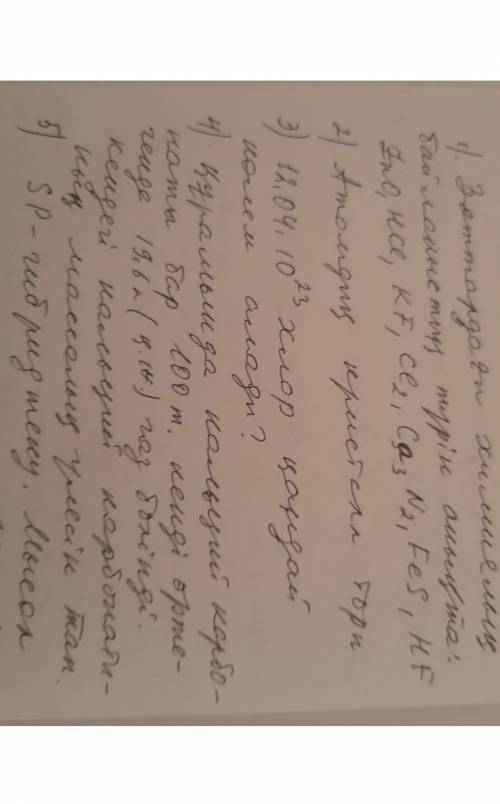 1). Заттардағы химиялық
байланыстың түрін анықта:
ZnO, HCl, KF, Cl2, Ca3N2, FeS, HF
2) Атомдық кристалл торы
3) 12.04.10²³ хлор қандай
көлем алады?
4) Құрамында кальций карбо-
наты бар 100 т. кенді өрте-
генде 19.6 л (қ.ж.) газ бөлінді.
кендегі кальций карбонаты-
ның массалық үлесін тап.
5) SP-гибридтену. Мысал